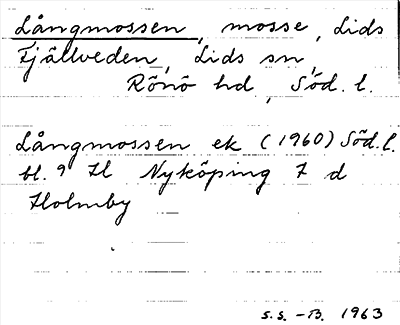 Långmossen, mosse, Lids
Fjällveden, Lids sn,
Rönö hd, Söd. l.
Långmossen ek (1960) Söd. l.
bl. 9 H Nyköping 7 d
Holmby
S.S. -B. 1963